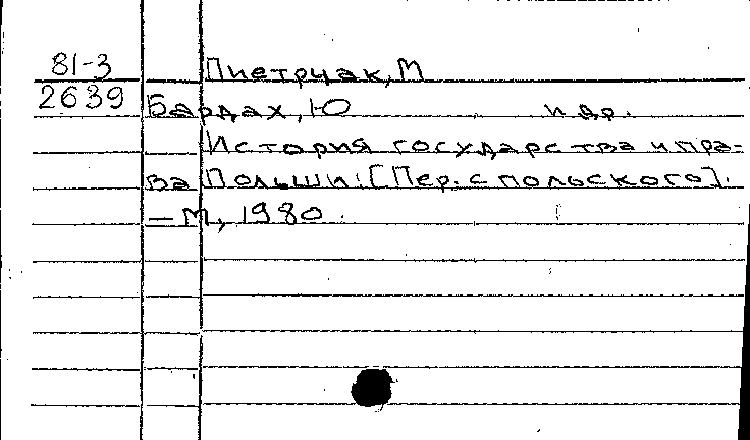 81-3 Пиетрчак, М
2639 Бардах, Ю и др.
История государства и пра-
ва Польши: [Пер. с польского].
— М, 1980.